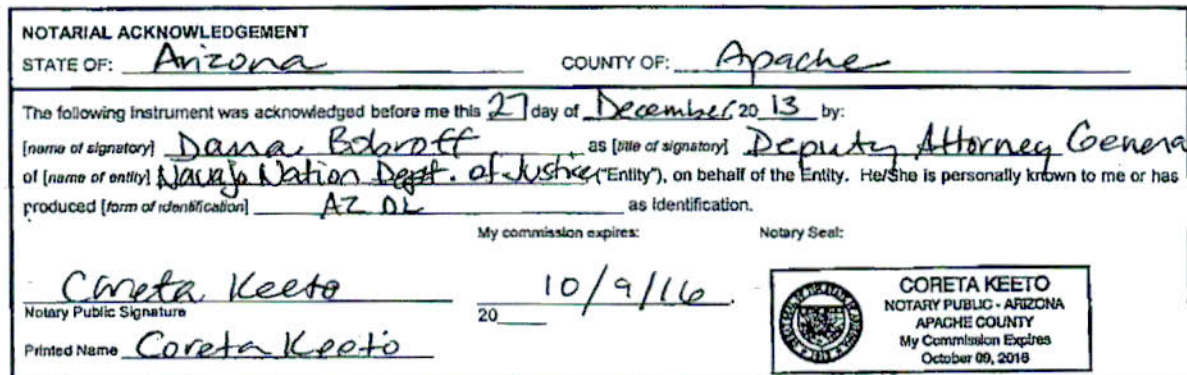 NOTARIAL ACKNOWLEDGEMENT
STATE OF: Arizona COUNTY OF: Apache
The following instrument was acknowledged before me this 27 day of December, 20 13 by:
[name of signatory] Dana Bobroff as [title of signatory] Deputy Attorney Genera
of [name of entity] Navajo Nation Dept. of Justice ("Entity"), on behalf of the Entity. He/She is personally known to me or has
produced [form of identification] AZ DL as identification.
My commission expires: Notary Seal:
Coreta Keeto 10/9/16.
Notary Public Signature 20
Printed Name Coreta Keeto
CORETA KEETO
NOTARY PUBLIC - ARIZONA
APACHE COUNTY
My Commission Expires
October 09, 2016